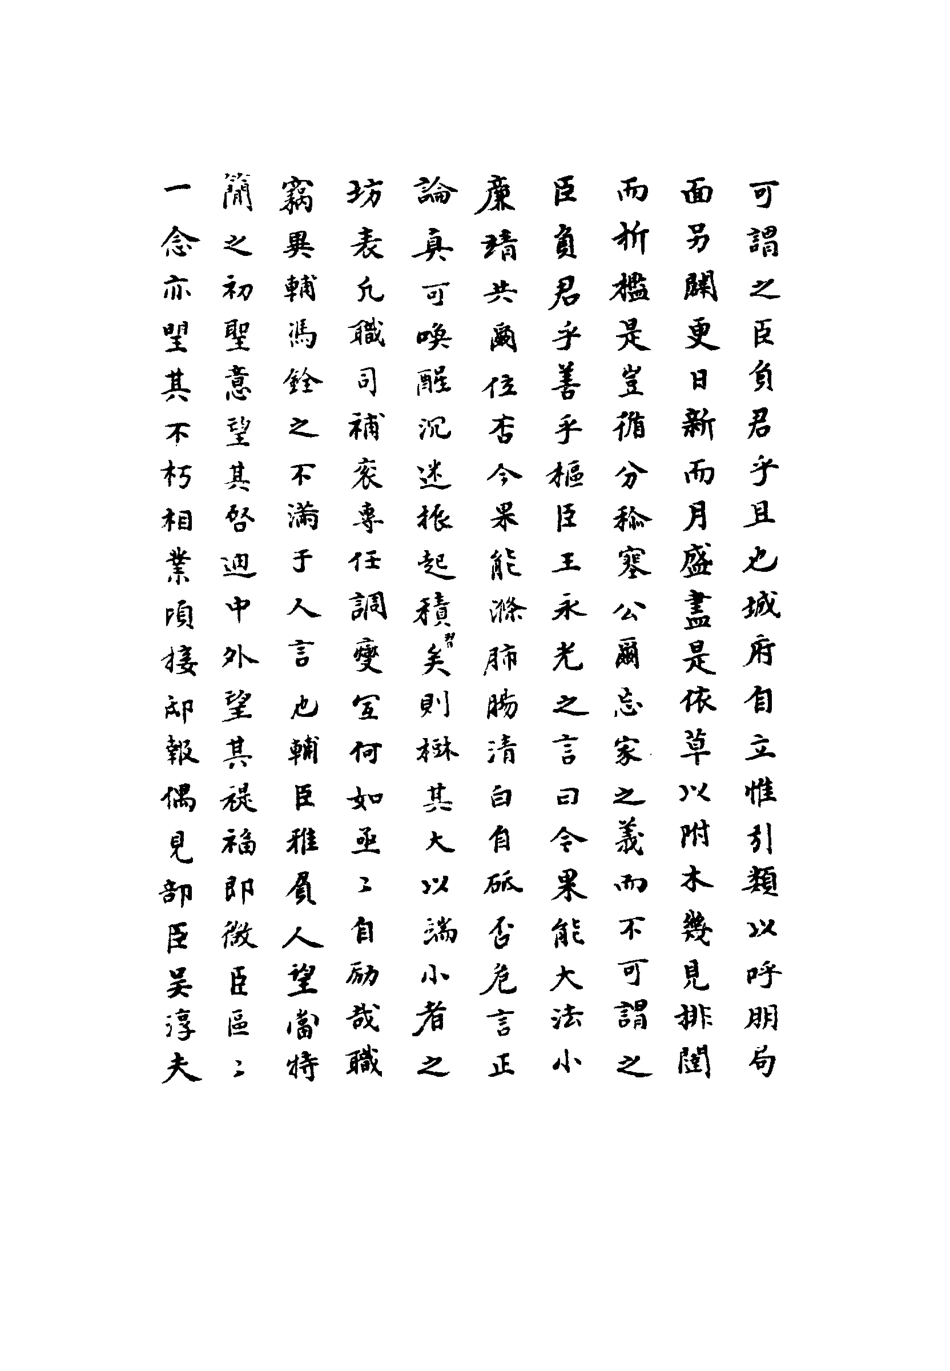 可謂之臣負君乎且也城府自立惟引類以呼朋局
面另闢更日新而月盛盡是依草以附木幾見排闥
而折檻是豈循分稱蹇公爾忘家之義而不可謂之
臣負君乎善乎樞臣王永光之言曰令果能大法小
廉靖共爾位否今果能滌肺腸清白自砥否危言正
論真可喚醒沉迷振起積習矣則楙其大以端小者之
坊表凢職司補衮專任調燮宜何如亟〻自励哉職
竊異輔馮銓之不滿于人言也輔臣雅負人望當特
簡之初聖意望其啓迪中外望其禔福即微臣區〻
一念亦望其不朽相業頃接邸報偶見部臣吴淳夫